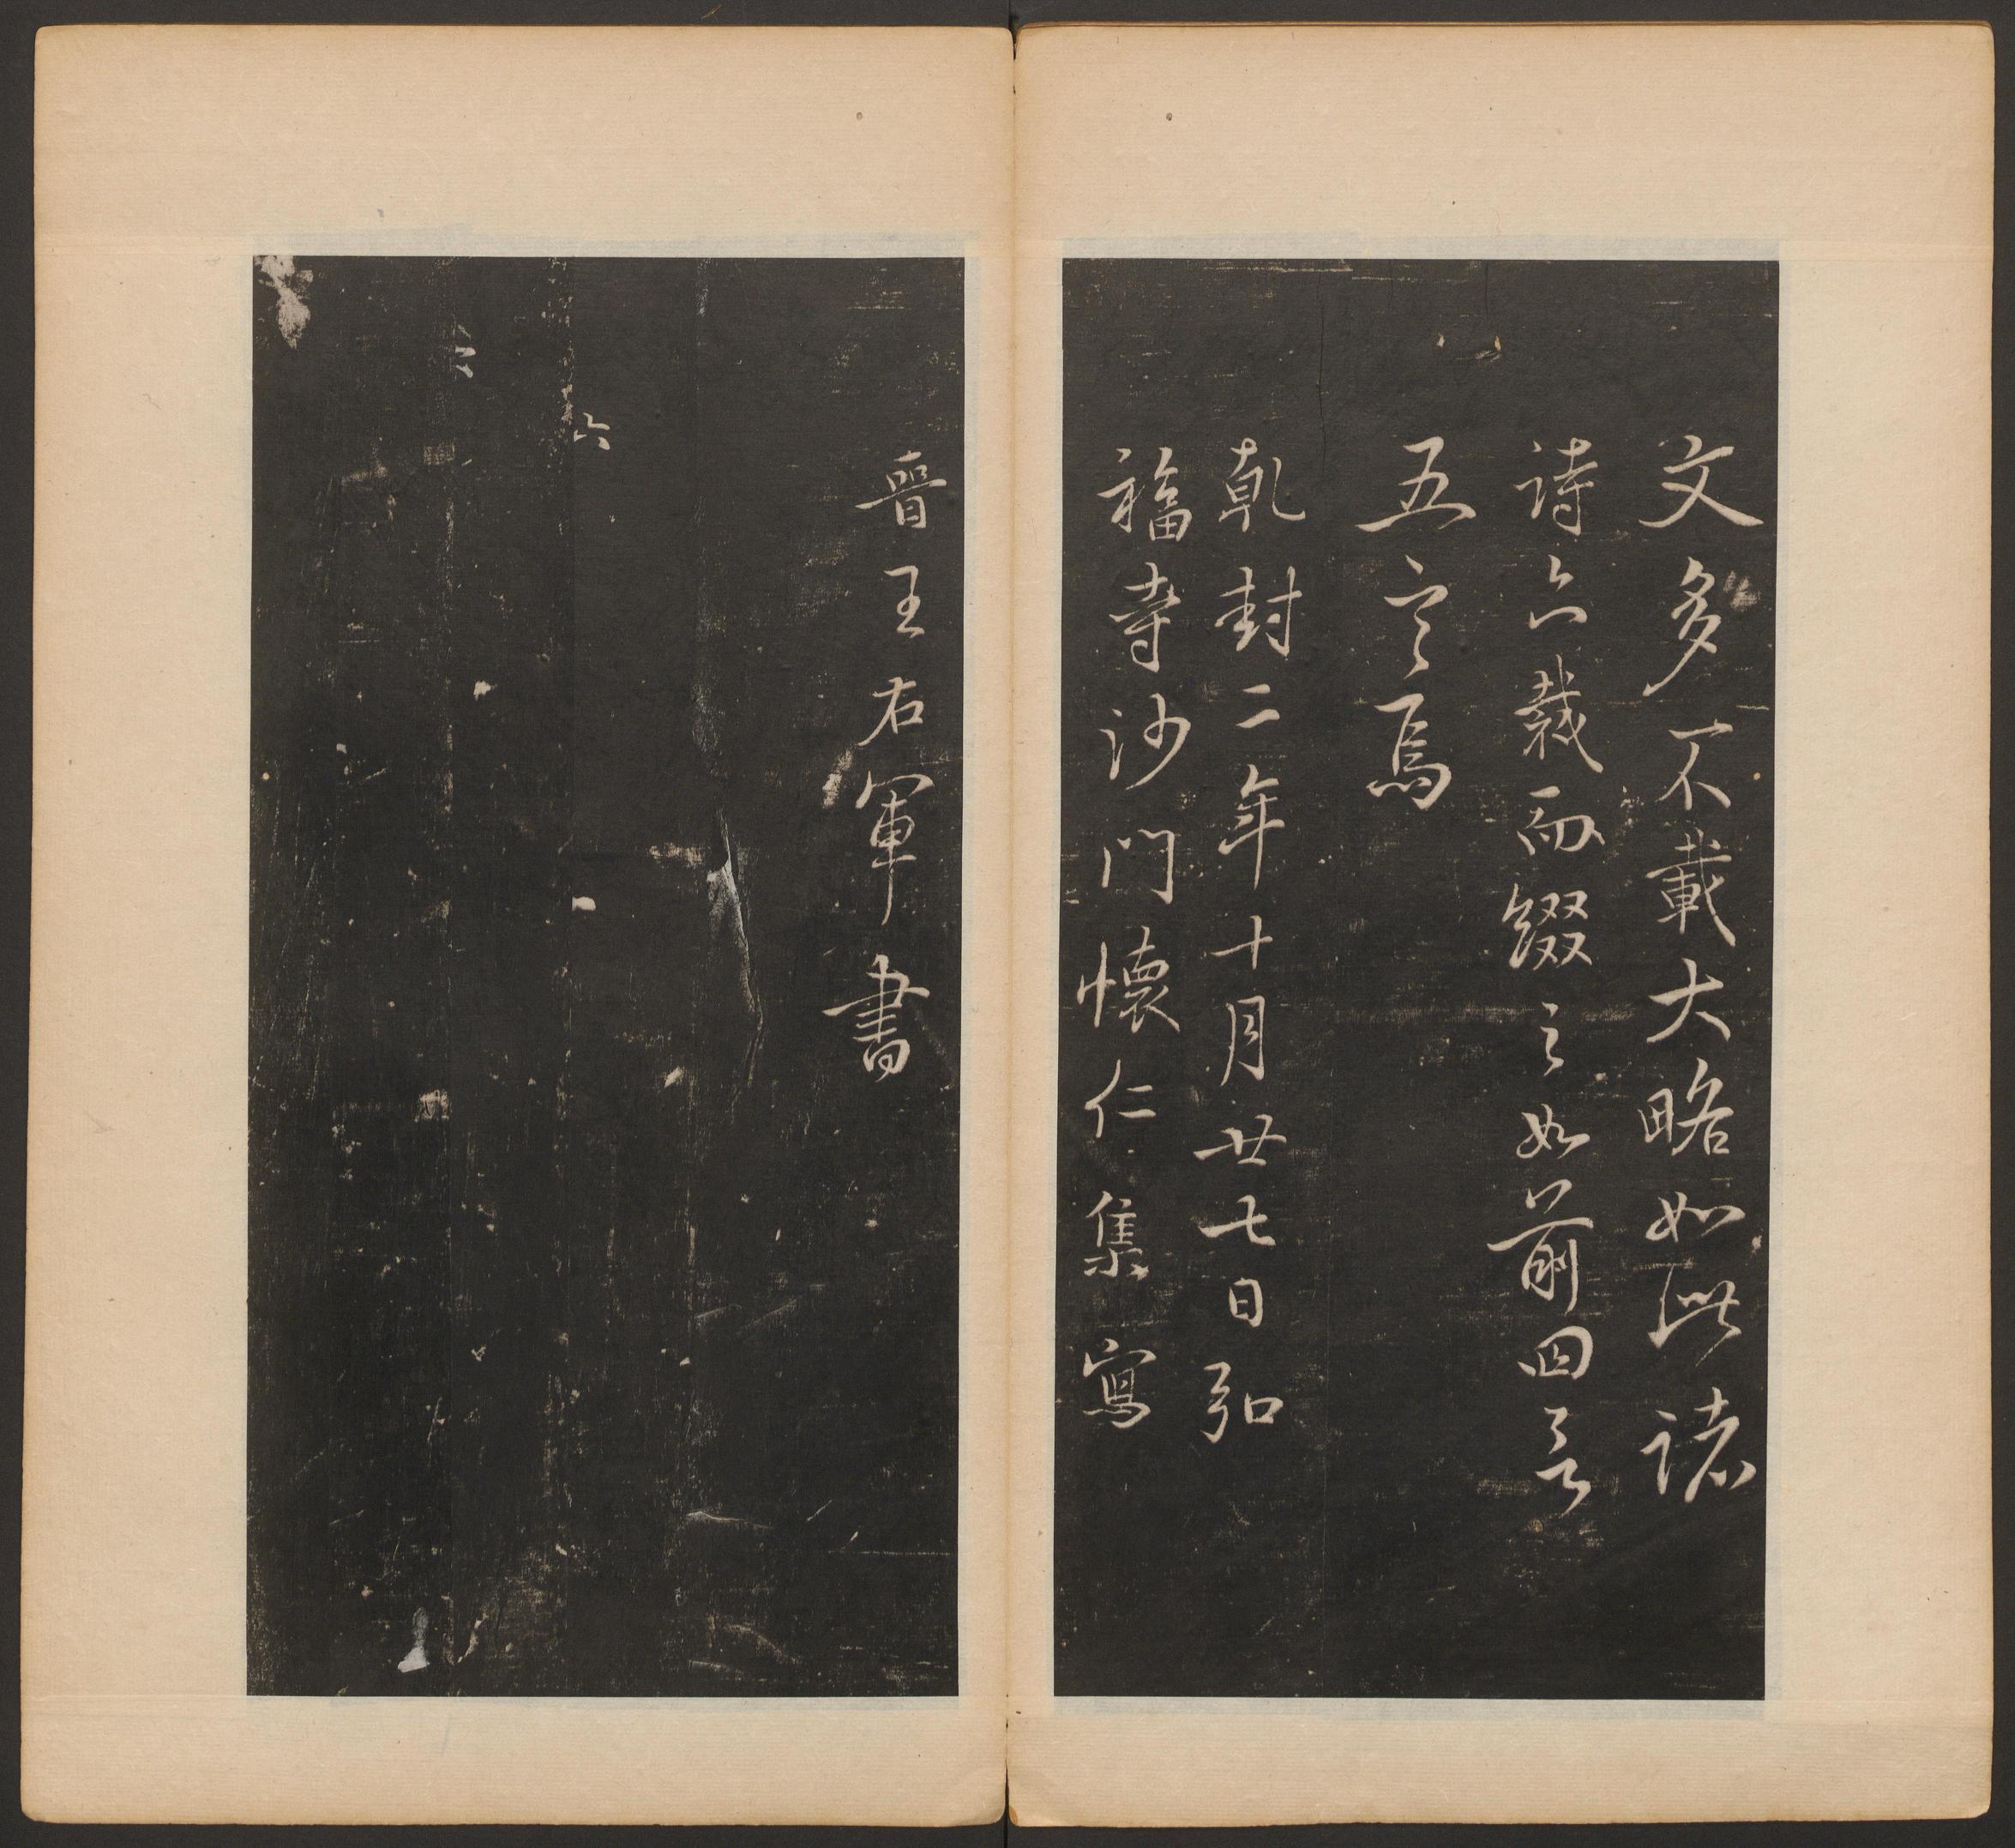 文多不載大略如此諸
詩亦裁而綴之如前四言
五言焉
乾封二年十月廿七日弘
福寺沙門懷仁集寫
晉王右軍書
六
二